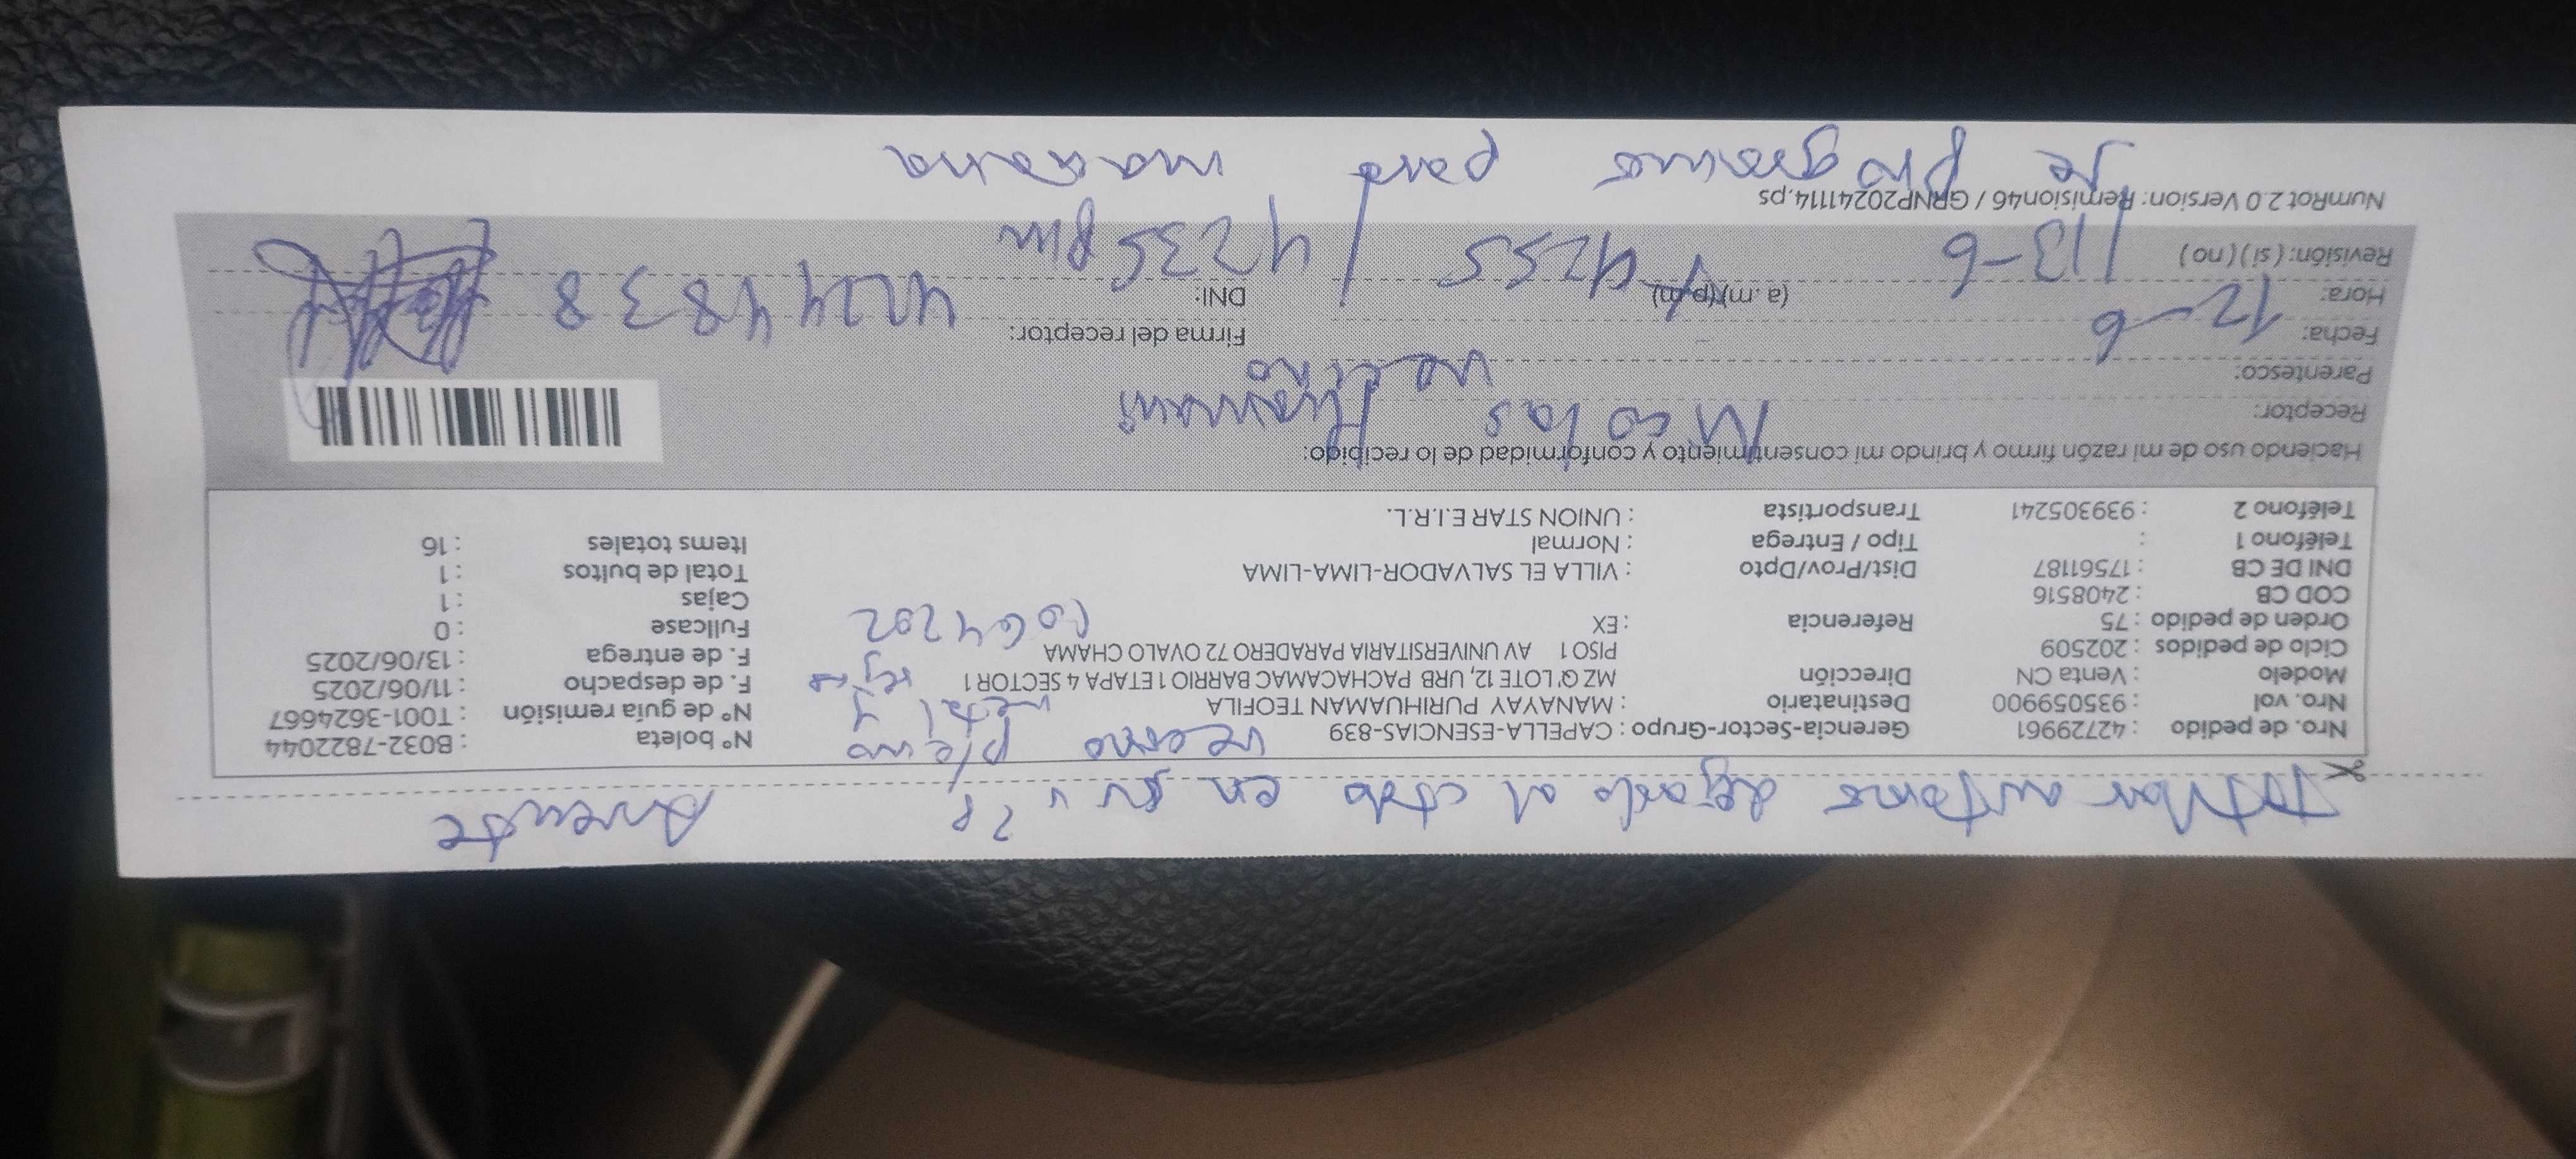 Titular autoriza dejarlo al cdo en su Ausente
vecino
Nro. de pedido : 42729961 Gerencia-Sector-Grupo : CAPELLA-ESENCIAS-839 N° boleta : B032-7822044
Nro. vol : 935059900 Destinatario : MANAYAY PURIHUAMAN TEOFILA N° de guía remisión : T001-3624667
Modelo : Venta CN Dirección MZ Q' LOTE 12, URB PACHACAMAC BARRIO 1 ETAPA 4 SECTOR 1 F. de despacho : 11/06/2025
Ciclo de pedidos : 202509 PISO 1 AV UNIVERSITARIA PARADERO 72 OVALO CHAMA F. de entrega : 13/06/2025
Orden de pedido : 75 Referencia : EX Fullcase : 0
COD CB : 2408516 Cajas : 1
DNI DE CB : 17561187 Dist/Prov/Dpto : VILLA EL SALVADOR-LIMA-LIMA Total de bultos : 1
Teléfono 1 : Tipo / Entrega : Normal Items totales : 16
Teléfono 2 : 939305241 Transportista : UNION STAR E.I.R.L.
Haciendo uso de mi razón firmo y brindo mi consentimiento y conformidad de lo recibido:
Receptor: Nicolas
Parentesco: vecino
Fecha: 12-6 Firma del receptor:
Hora: (a.m)(p.m) DNI:
Revisión: (si) (no) 13-6 4235 pm
NumRot 2.0 Version: Remision46 / GRNP20241114.ps
Se programo para mañana